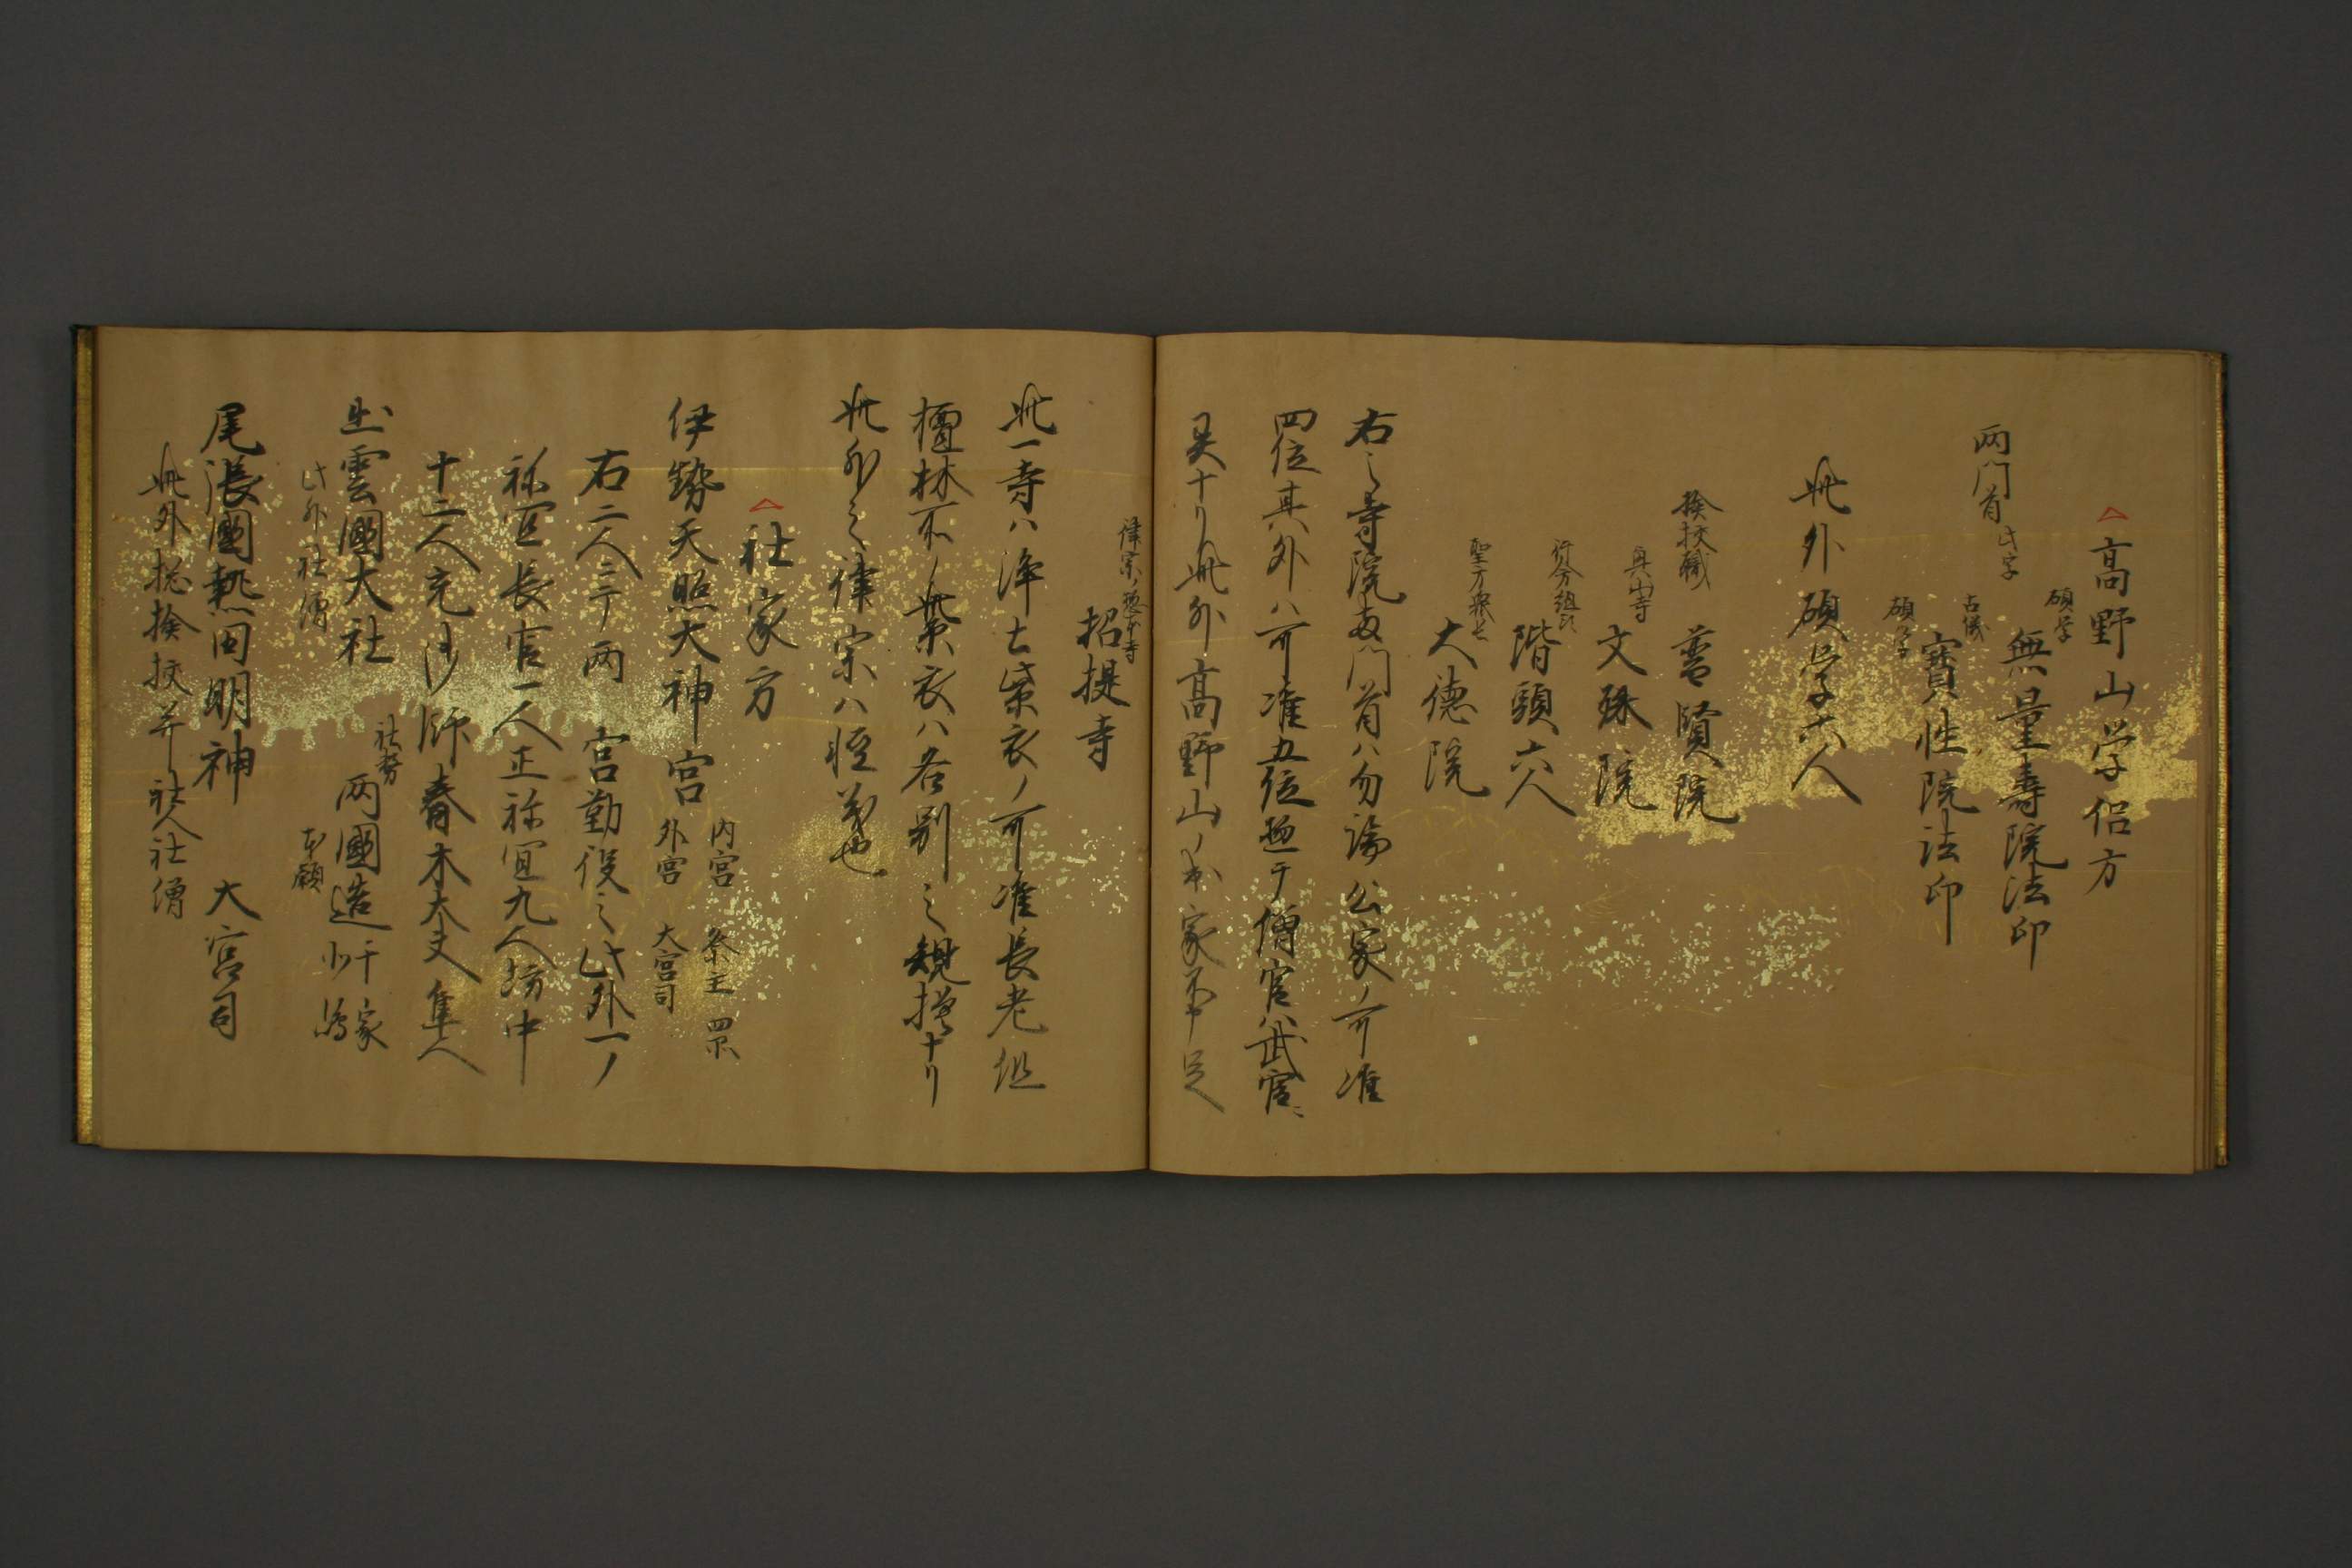 △高野山学侶方
碩学
無量壽院法印
両門首
古儀
寶性院法印
碩学
此外碩学六人
検校職
普賢院
興山寺
文殊院
行方組頭
階頭六人
聖方衆長
大徳院
右之寺院両門首ハ勿論公家ノ可准
四位其外ハ可准五位惣テ僧官ハ武官ニ
異ナリ此外高野山ノ衆家不申足
律宗ノ惣本寺
招提寺
此一寺ハ浄土紫衣ノ可准長老但
檀林不ノ紫衣ハ各別之規摸ナリ
此外之律宗ハ軽義也
△社家方
伊勢天照大神宮
内宮 祭主 四品
外宮 大宮司
右二人ニテ両宮勤役之此外一ノ
祢宜長官一人正祢宜九人坊中
十二人充御師春木大夫隼人
出雲國大社
社務
両國造
千家
北嶋
此外社僧
本願
尾張國熱田明神 大宮司
此外惣検挍并社人社僧